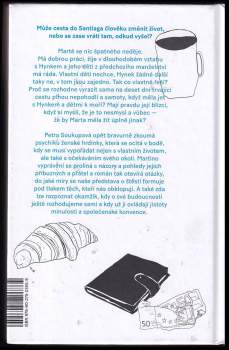 Může cesta do Santiaga člověku změnit život,
nebo se zase vrátí tam, odkud vyšel?
Martě se nic špatného neděje.
Má dobrou práci, žije v dlouhodobém vztahu
s Hynkem a jeho dětmi z předchozího manželství
má ráda. Vlastní děti nechce, Hynek další
taky ne, v tom jsou zajedno. Tak co vlastně řeší?
Proč se rozhodne vyrazit sama na deset dní
cestu plnou nepohodlí a samoty, když měla jet
s Hynkem a dětmi k moři? Mají pravdu její blízcí,
když si myslí, že je to nesmysl a vůbec –
že by Marta měla žít úplně jinak?
Petra Soukupová opět bravurně zkoumá
psychiku ženské hrdinky, která se ocitá v době,
kdy se musí vypořádat nejen s vlastním životem,
ale také s očekáváním svého okolí. Martino
vyprávění se prolíná s názory a pohledy jejích
příbuzných a přátel a román tak otevírá otázky,
do jaké míry se naše představa o štěstí formuje
pod tlakem těch, kteří nás obklopují. A také zda
lze rozpoznat okamžik, kdy o své budoucnosti
ještě rozhodujeme sami a kdy už jí ovládají jistoty
minulosti a společenské konvence.
50